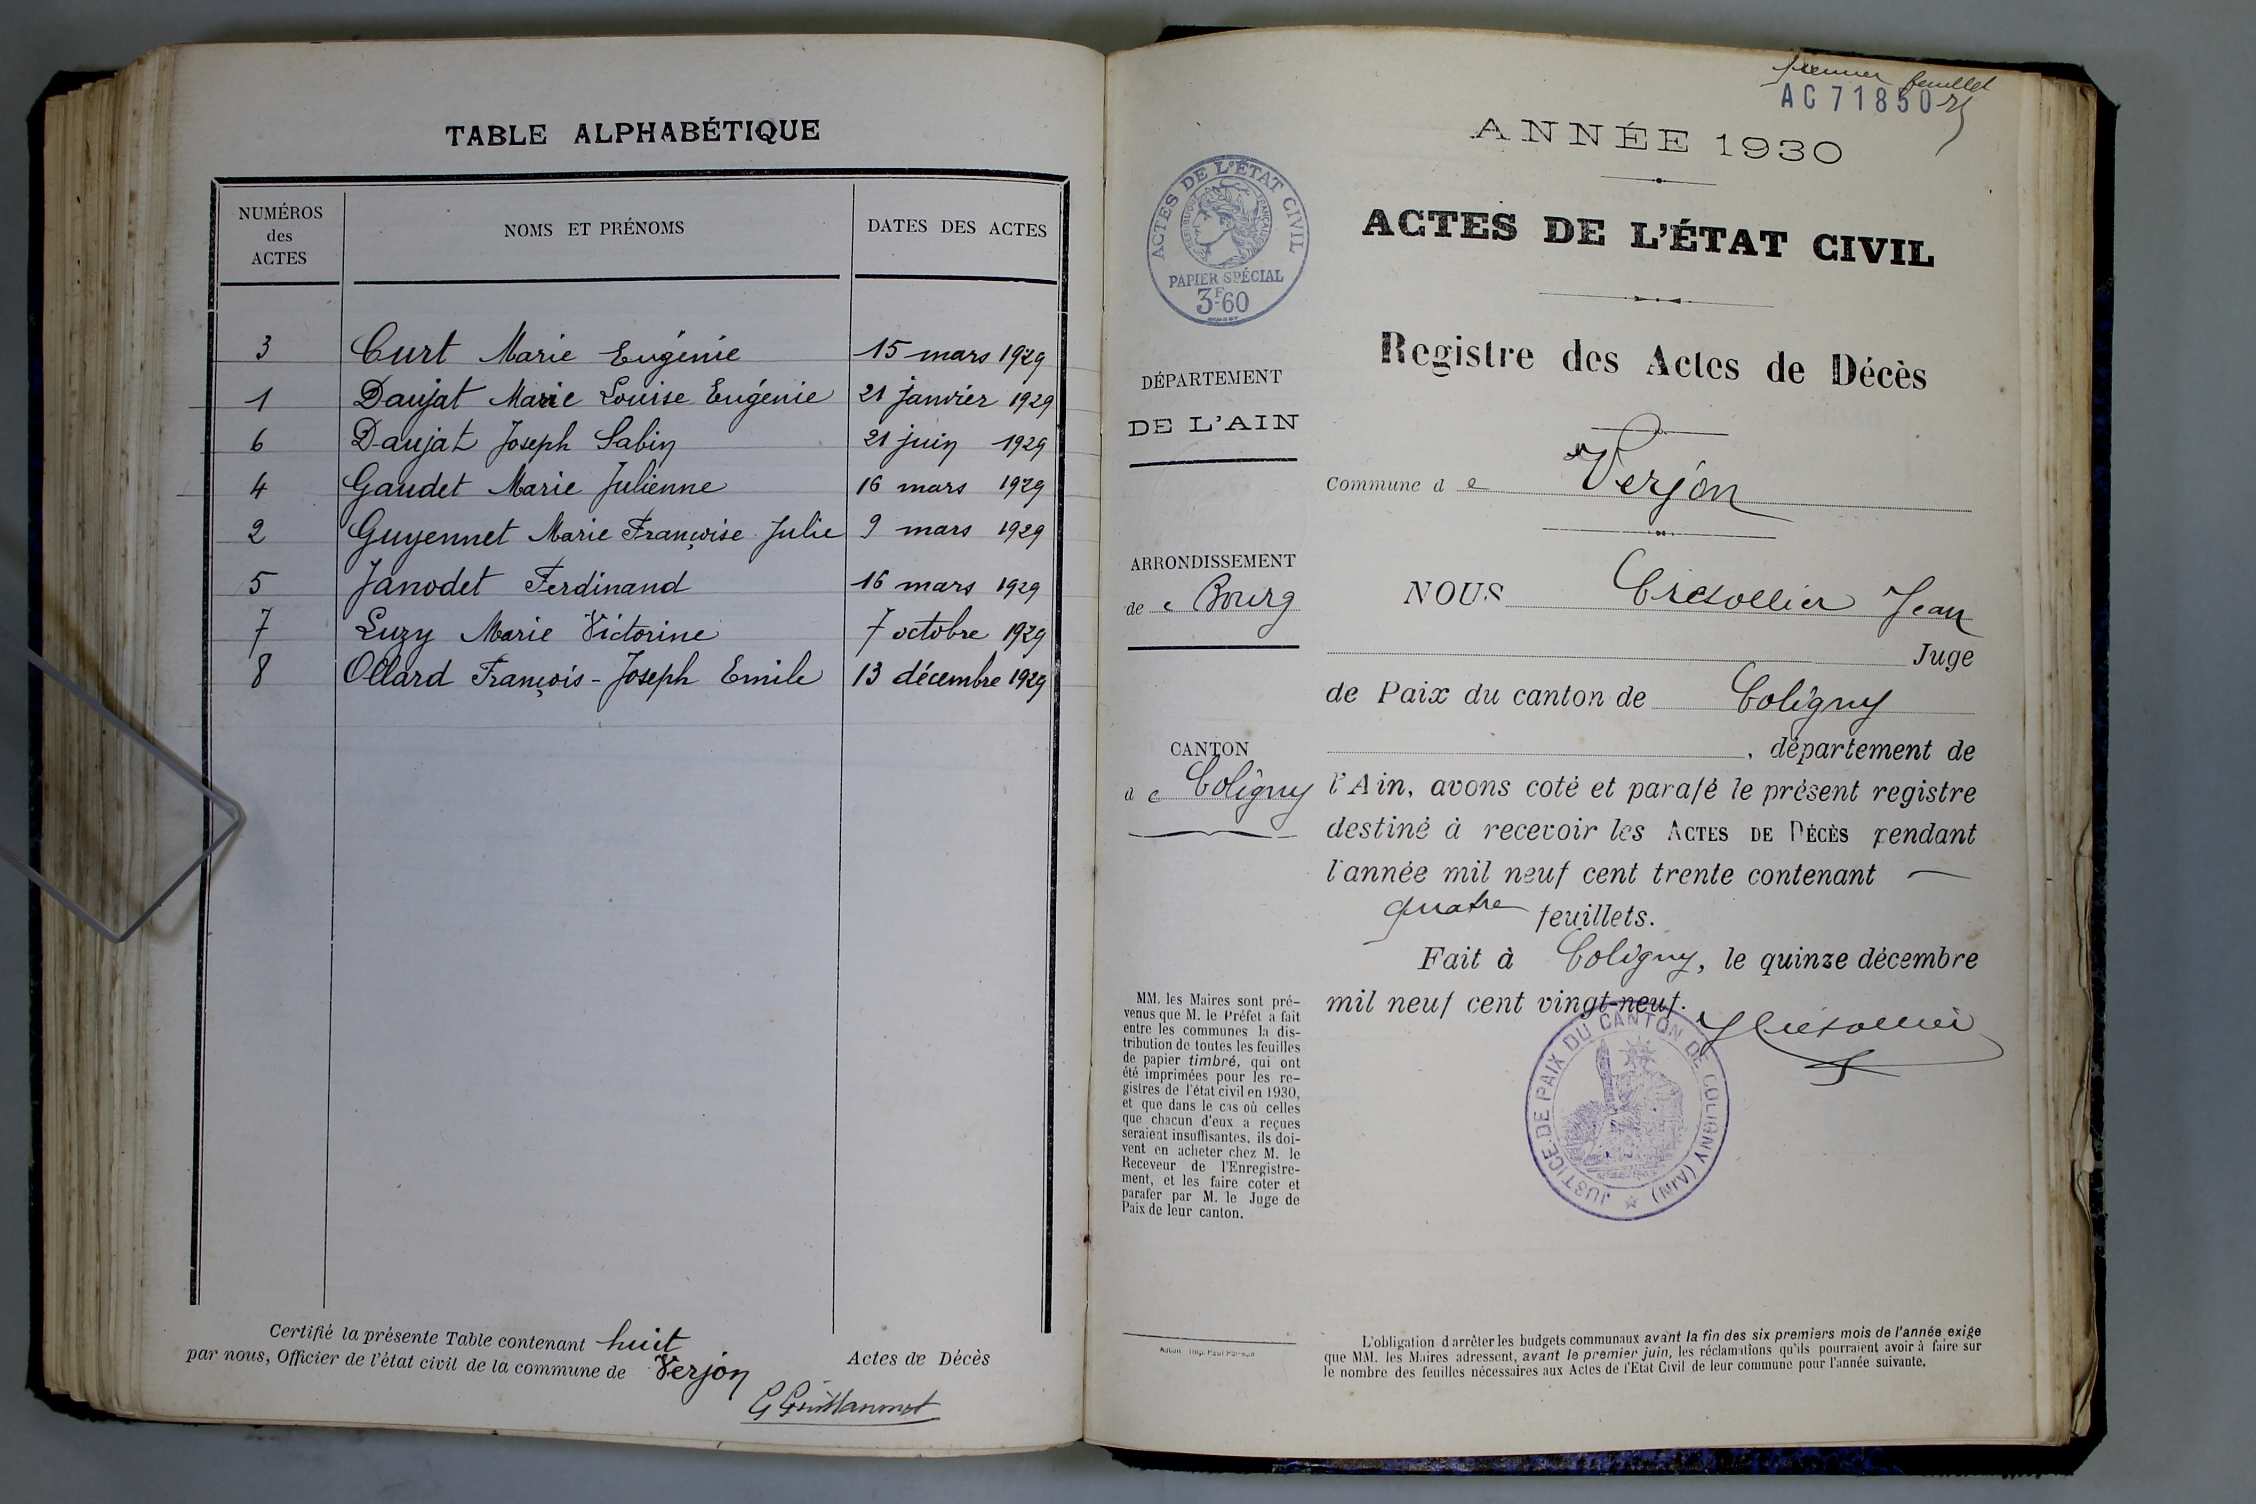 TABLE ALPHABÉTIQUE
NUMÉROS des ACTES
NOMS ET PRÉNOMS
DATES DES ACTES
3 Curt Marie Eugénie 15 mars 1929
1 Daujat Marie Louise Eugénie 21 janvier 1929
6 Daujat Joseph Sabin 21 juin 1929
4 Gaudet Marie Julienne 16 mars 1929
2 Guyennet Marie Françoise Julie 9 mars 1929
5 Janodet Ferdinand 16 mars 1929
7 Luzy Marie Victorine 7 octobre 1929
8 Ollard François-Joseph Emile 13 décembre 1929
Certifié la présente Table contenant huit Actes de Décès
par nous, Officier de l'état civil de la commune de Verjon
premier feuillet
AC 71850
ANNÉE 1930
ACTES DE L'ÉTAT CIVIL
PAPIER SPÉCIAL
3F60
ACTES DE L'ÉTAT CIVIL
Registre des Actes de Décès
DÉPARTEMENT
DE L'AIN
Commune de Verjon
ARRONDISSEMENT
de Bourg
CANTON
de Coligny
NOUS Jean
Juge
de Paix du canton de Coligny
, département de
l'Ain, avons coté et parafé le présent registre
destiné à recevoir les ACTES DE DÉCÈS pendant
l'année mil neuf cent trente contenant
quatre feuillets.
Fait à Coligny, le quinze décembre
mil neuf cent vingt-neuf.
JUSTICE DE PAIX DU CANTON DE COLIGNY (AIN)
MM. les Maires sont pré-
venus que M. le Préfet a fait
entre les communes la dis-
tribution de toutes les feuilles
de papier timbré, qui ont
été imprimées pour les re-
gistres de l'état civil en 1930,
et que dans le cas où celles
que chacun d'eux a reçues
seraient insuffisantes, ils doi-
vent en acheter chez M. le
Receveur de l'Enregistre-
ment, et les faire coter et
parafer par M. le Juge de
Paix de leur canton.
L'obligation d'arrêter les budgets communaux avant la fin des six premiers mois de l'année exige
que MM. les Maires adressent, avant le premier juin, les réclamations qu'ils pourraient avoir à faire sur
le nombre des feuilles nécessaires aux Actes de l'Etat Civil de leur commune pour l'année suivante.